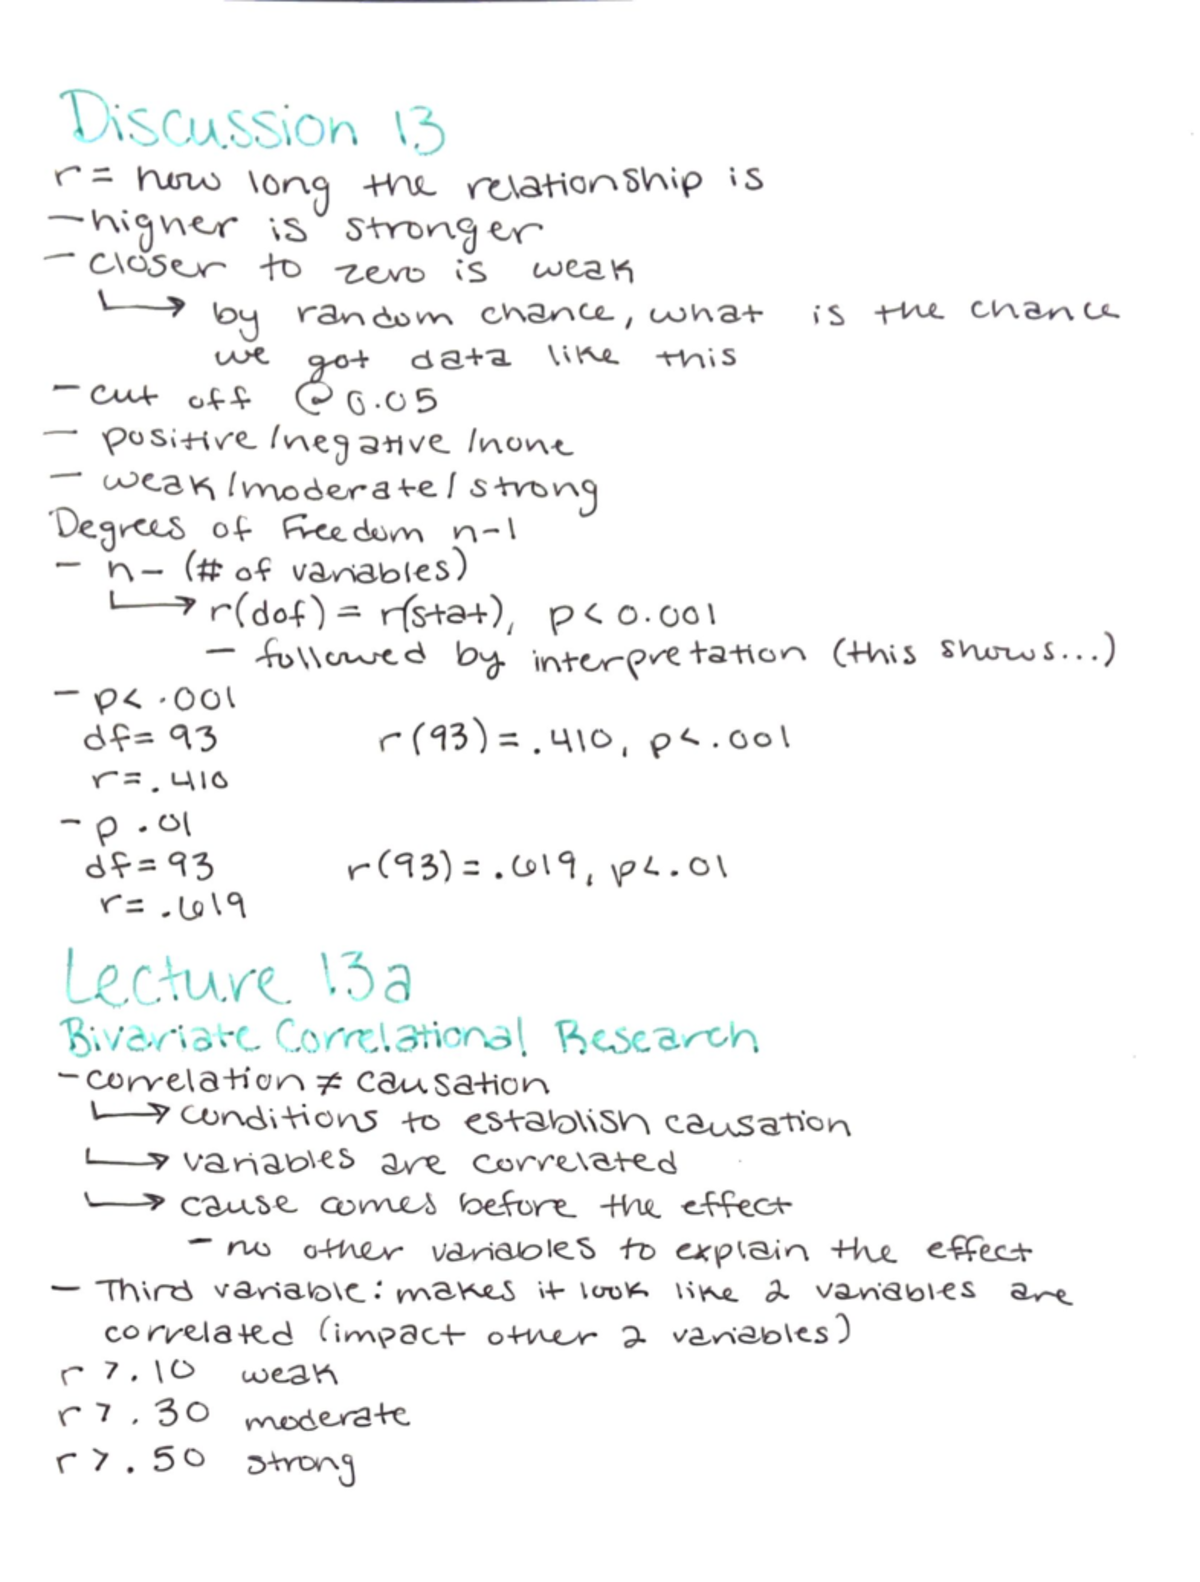 Discussion 13
r = how long the relationship is
- higher is stronger
- closer to zero is weak
↳ by random chance, what is the chance
we got data like this
- cut off @ 0.05
- positive/negative/none
- weak/moderate/strong
Degrees of Freedom n-1
- n - (# of variables)
↳ r(dof) = r(stat), p < 0.001
- followed by interpretation (this shows...)
- p< .001
df= 93 r(93) = .410, p< .001
r= .410
- p .01
df= 93 r(93) = .619, p< .01
r= .619
Lecture 13a
Bivariate Correlational Research
- correlation ≠ causation
↳ conditions to establish causation
↳ variables are correlated
↳ cause comes before the effect
- no other variables to explain the effect
- Third variable: makes it look like 2 variables are
correlated (impact other 2 variables)
r > .10 weak
r > .30 moderate
r > .50 strong